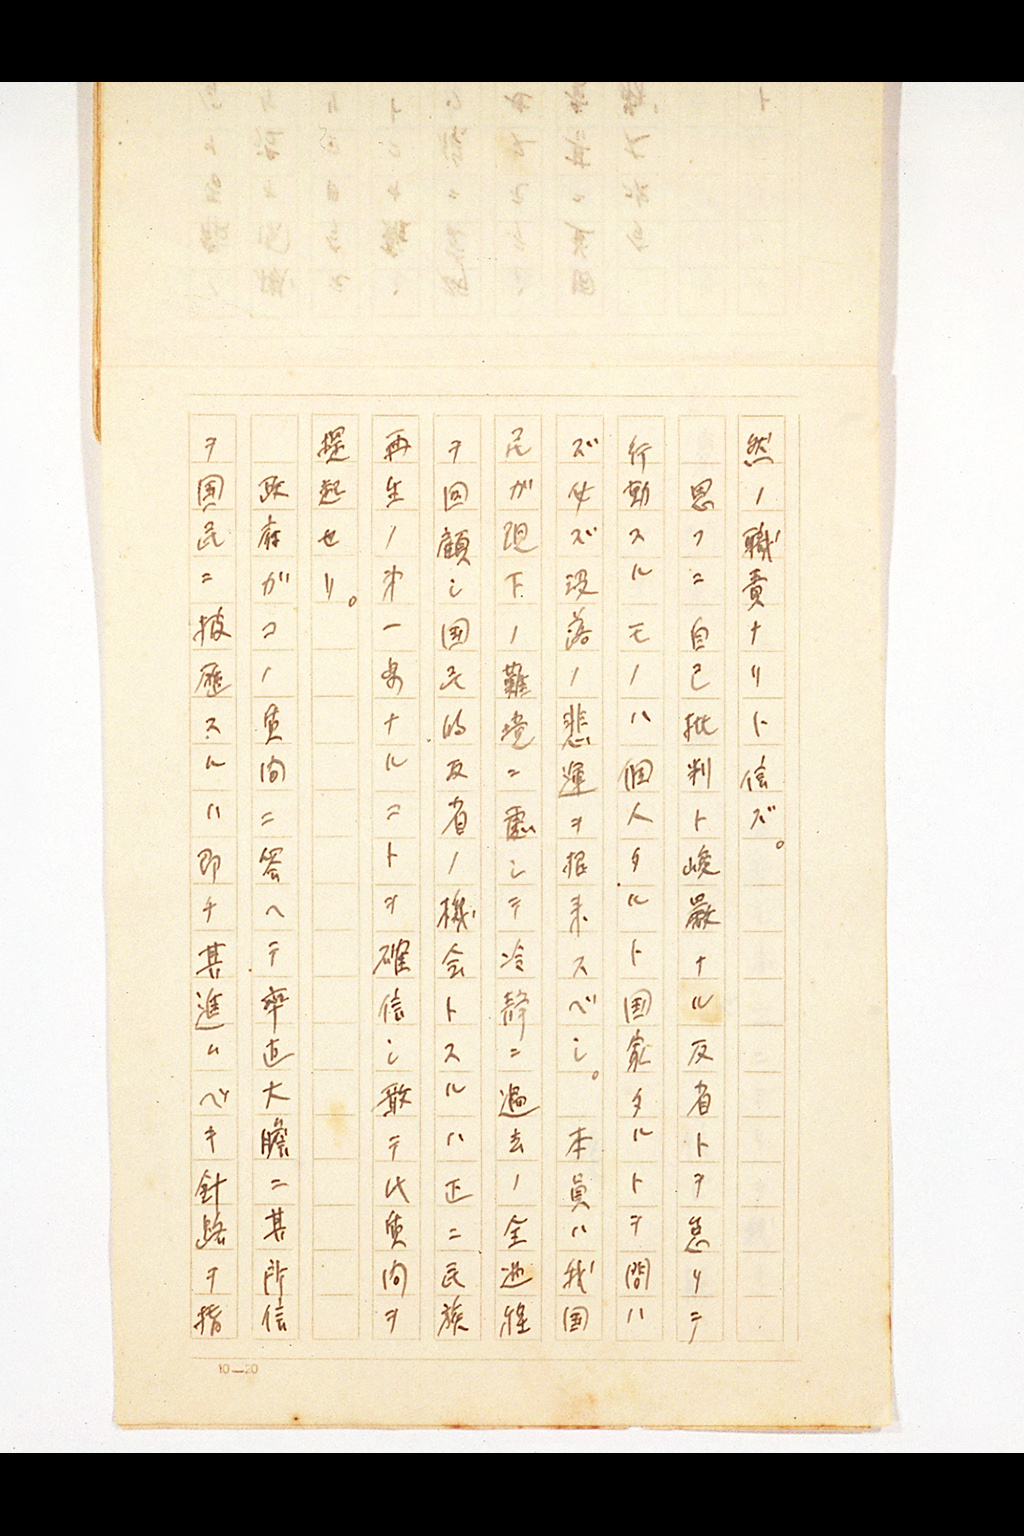 然ノ職責ナリト信ズ。
思フニ自己批判ト峻厳ナル反省トヲ怠リテ
行動スルモノハ個人タルト国家タルトヲ問ハ
ズ必ズ没落ノ悲運ヲ招来スベシ。本員ハ我国
民ガ現下ノ難境ニ処シテ冷静ニ過去ノ全過程
ヲ回顧シ国民的反省ノ機会トスルハ正ニ民族
再生ノ第一歩ナルコトヲ確信シ敢テ此質問ヲ
提起セリ。
政府ガコノ質問ニ答ヘテ率直大胆ニ其所信
ヲ国民ニ披歴スルハ即チ其進ムベキ針路ヲ指
10—20